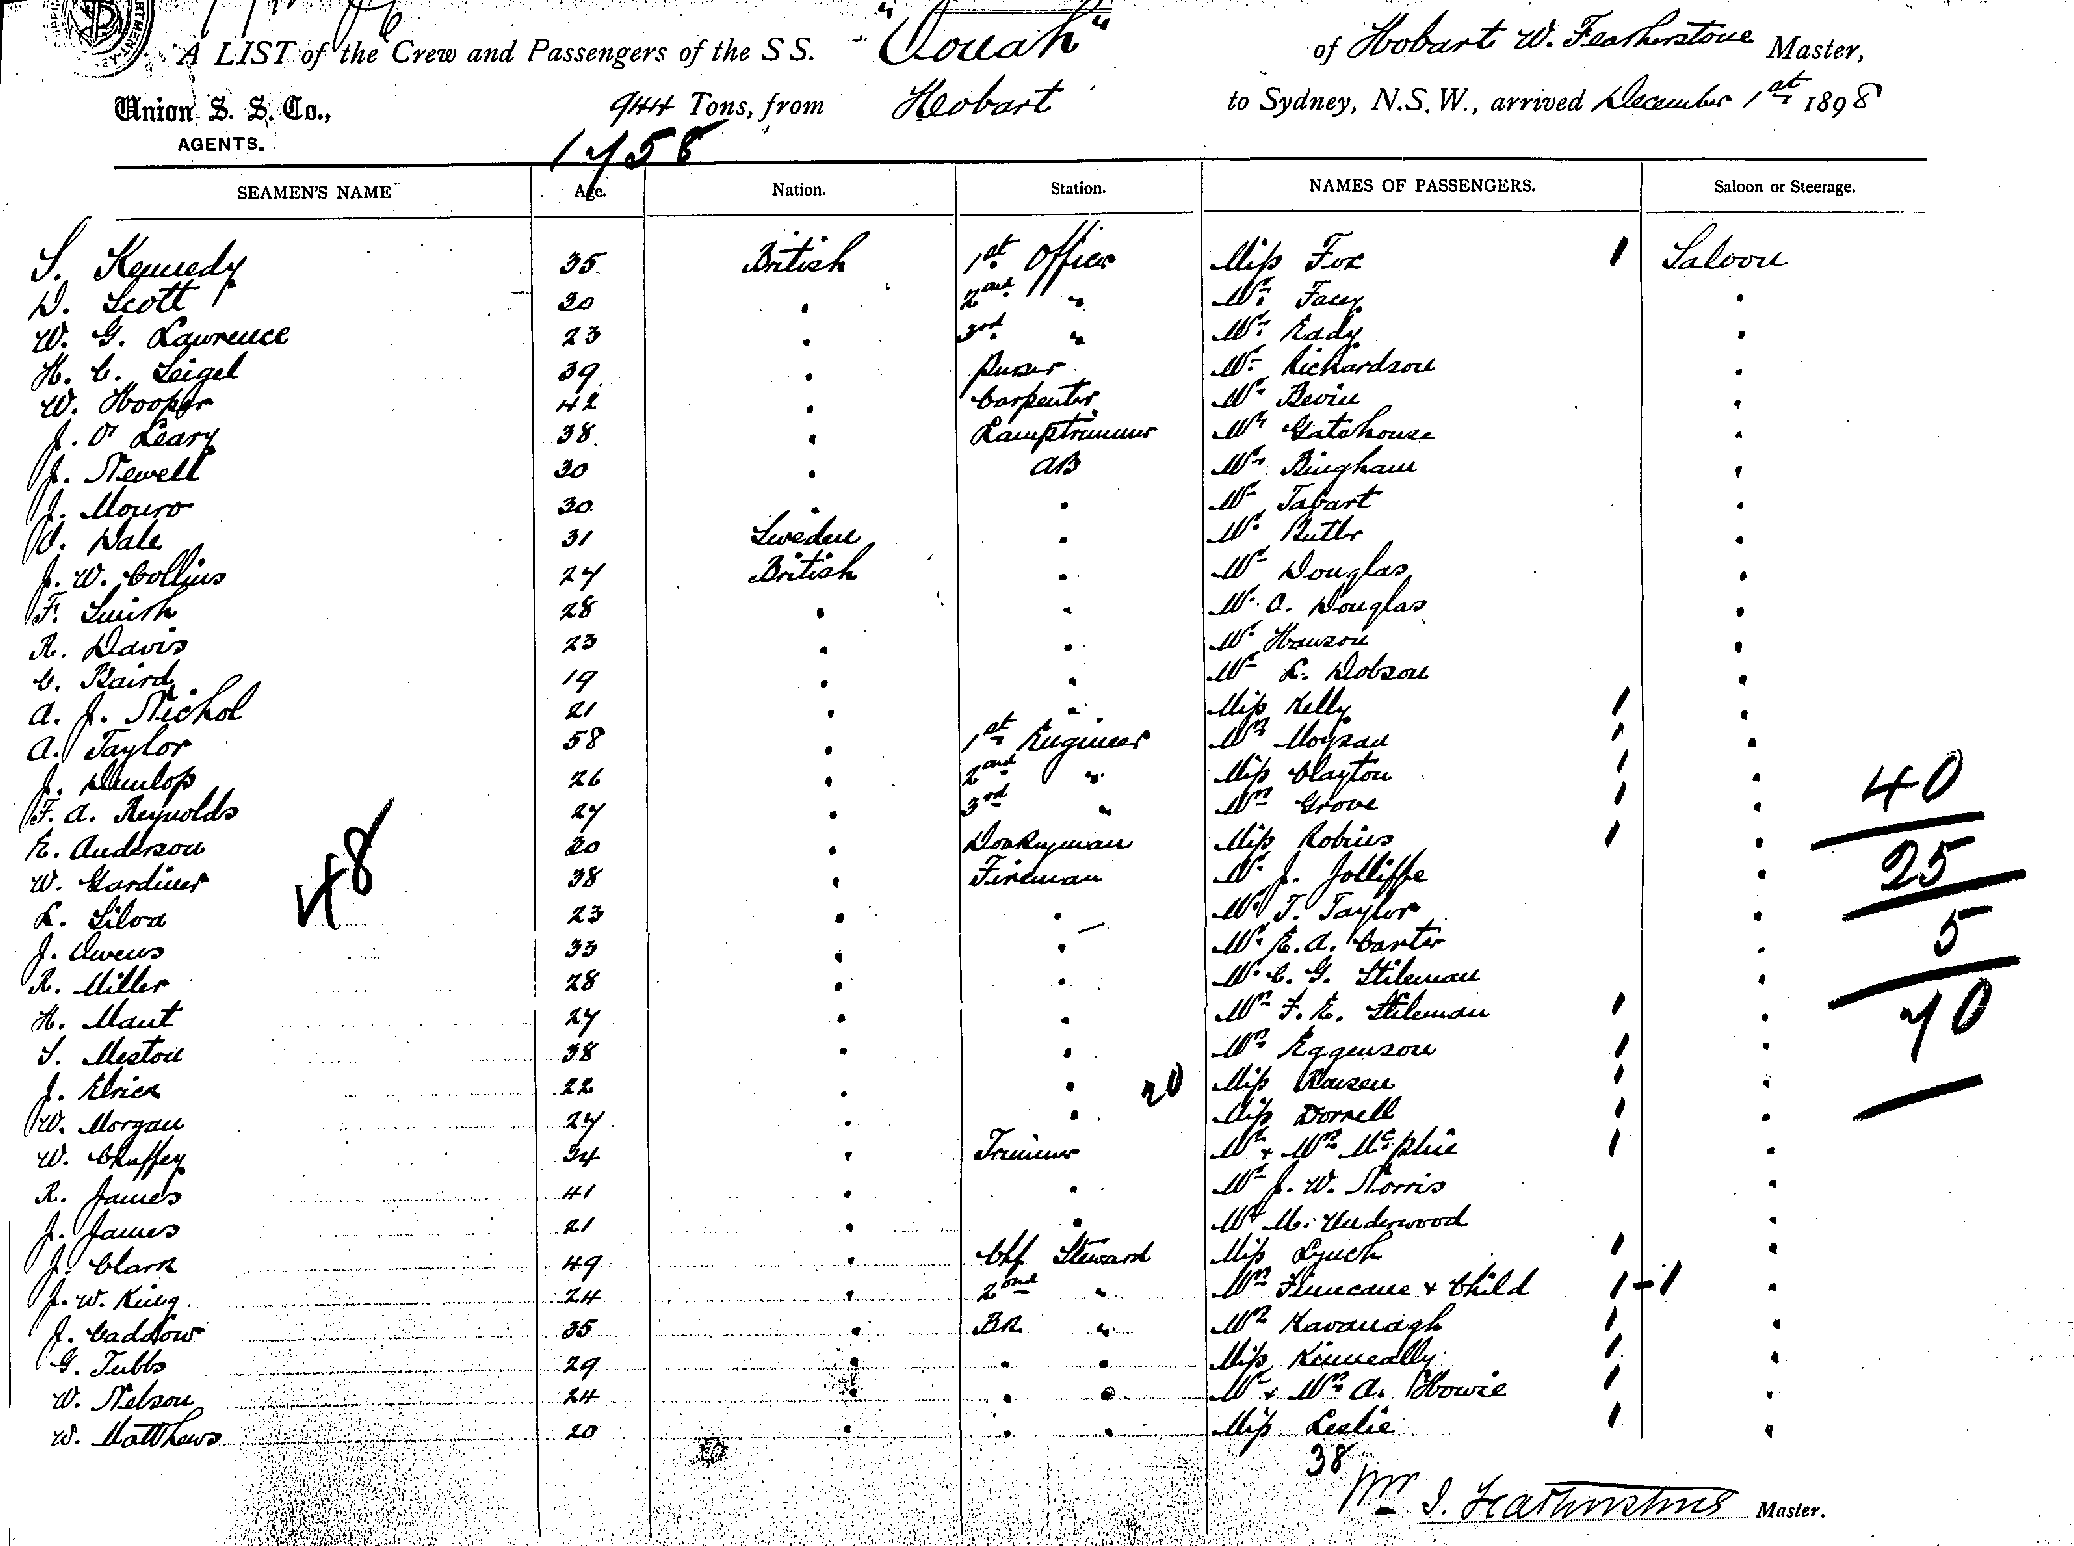 A LIST of the Crew and Passengers of the S S. "Oonah" of Hobart W. Featherstone Master,
Union S. S. Co., 944 Tons, from Hobart to Sydney, N.S.W., arrived December 1st 1898
AGENTS.
1758
SEAMEN'S NAME Age. Nation. Station. NAMES OF PASSENGERS. Saloon or Steerage.
S. Kennedy 35 British 1st Officer Miss Fox 1 Saloon
D. Scott 30 " 2nd " Mr. Facey "
W. G. Lawrence 23 " 3rd " Mr. Eady "
H. C. Seigel 39 " Purser Mr. Richardson "
W. Hooper 42 " Carpenter Mr. Bevin "
J. O'Leary 38 " Lamptrimmer Mr. Gatehouse "
J. Newell 30 " AB Mr. Bingham "
J. Mouro 30 " " Mr. Tabart "
O. Dale 31 Sweden " Mr. Butler "
J. W. Collins 27 British " Mr. Douglas "
F. Smith 28 " " Mr. O. Douglas "
R. Davis 23 " " Mr. Hawson "
C. Baird 19 " " Mr. L. Dobson "
A. J. Nichol 21 " " Miss Kelly 1 "
A. Taylor 58 " 1st Engineer Mrs Moysan 1 "
J. Dunlop 26 " 2nd " Miss Clayton 1 "
F. A. Reynolds 27 " 3rd " Mrs Grove 1 "
E. Anderson 30 " Donkeyman Miss Robins 1 "
W. Gardiner 38 " Fireman Mr. J. Jolliffe "
L. Silva 23 " " Mr. T. Taylor "
J. Owens 33 " " Mr. E. A. Carter "
R. Miller 28 " " Mr. C. G. Stileman "
H. Maut 27 " " Mrs F. E. Stileman 1 "
S. Meston 38 " " Mrs Eggenson 1 "
J. Elrick 22 " " 20 Miss Rowsen 1 "
W. Morgan 27 " " Miss Dorrell 1 "
W. Chaffey 34 " Trimmer Mr. & Mrs McPhie 1 "
R. James 41 " " Mr. J. W. Norris "
J. James 21 " " Mr M. Underwood "
J. Clark 49 " Chf Steward Miss Lynch 1 "
J. W. King 24 " 2nd " Mrs Finncane & Child 1-1 "
J. Caddow 35 " BR " Mrs Kavanagh 1 "
G. Tubbs 29 " " " Miss Kinneally 1 "
W. Nelson 24 " " " Mr & Mrs A. Howie 1 "
W. Matthews 20 " " " Miss Leslie 1 "
48
40
25
5
70
38
Wm J. Featherstone Master.